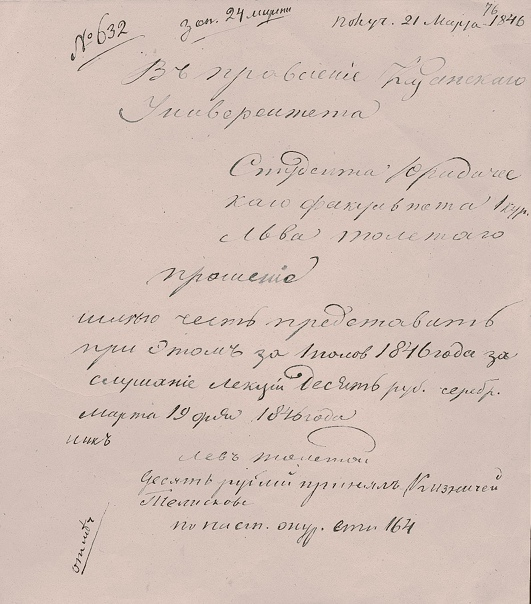 № 632
зап. 24 марта
получ. 21 Марта 1846
76
Въ правленіе Казанскаго
Университета
Студента Юридичес
каго факультета 1 кур.
Льва Толстаго
прошеніе
имѣю честь представить
при этомъ за 1 полов 1846 года за
слушаніе лекцій Десять руб. серебр.
Марта 19 дня 1846 года
Левъ Толстой
Десять рублей принялъ Казначей
по наст. стат 164